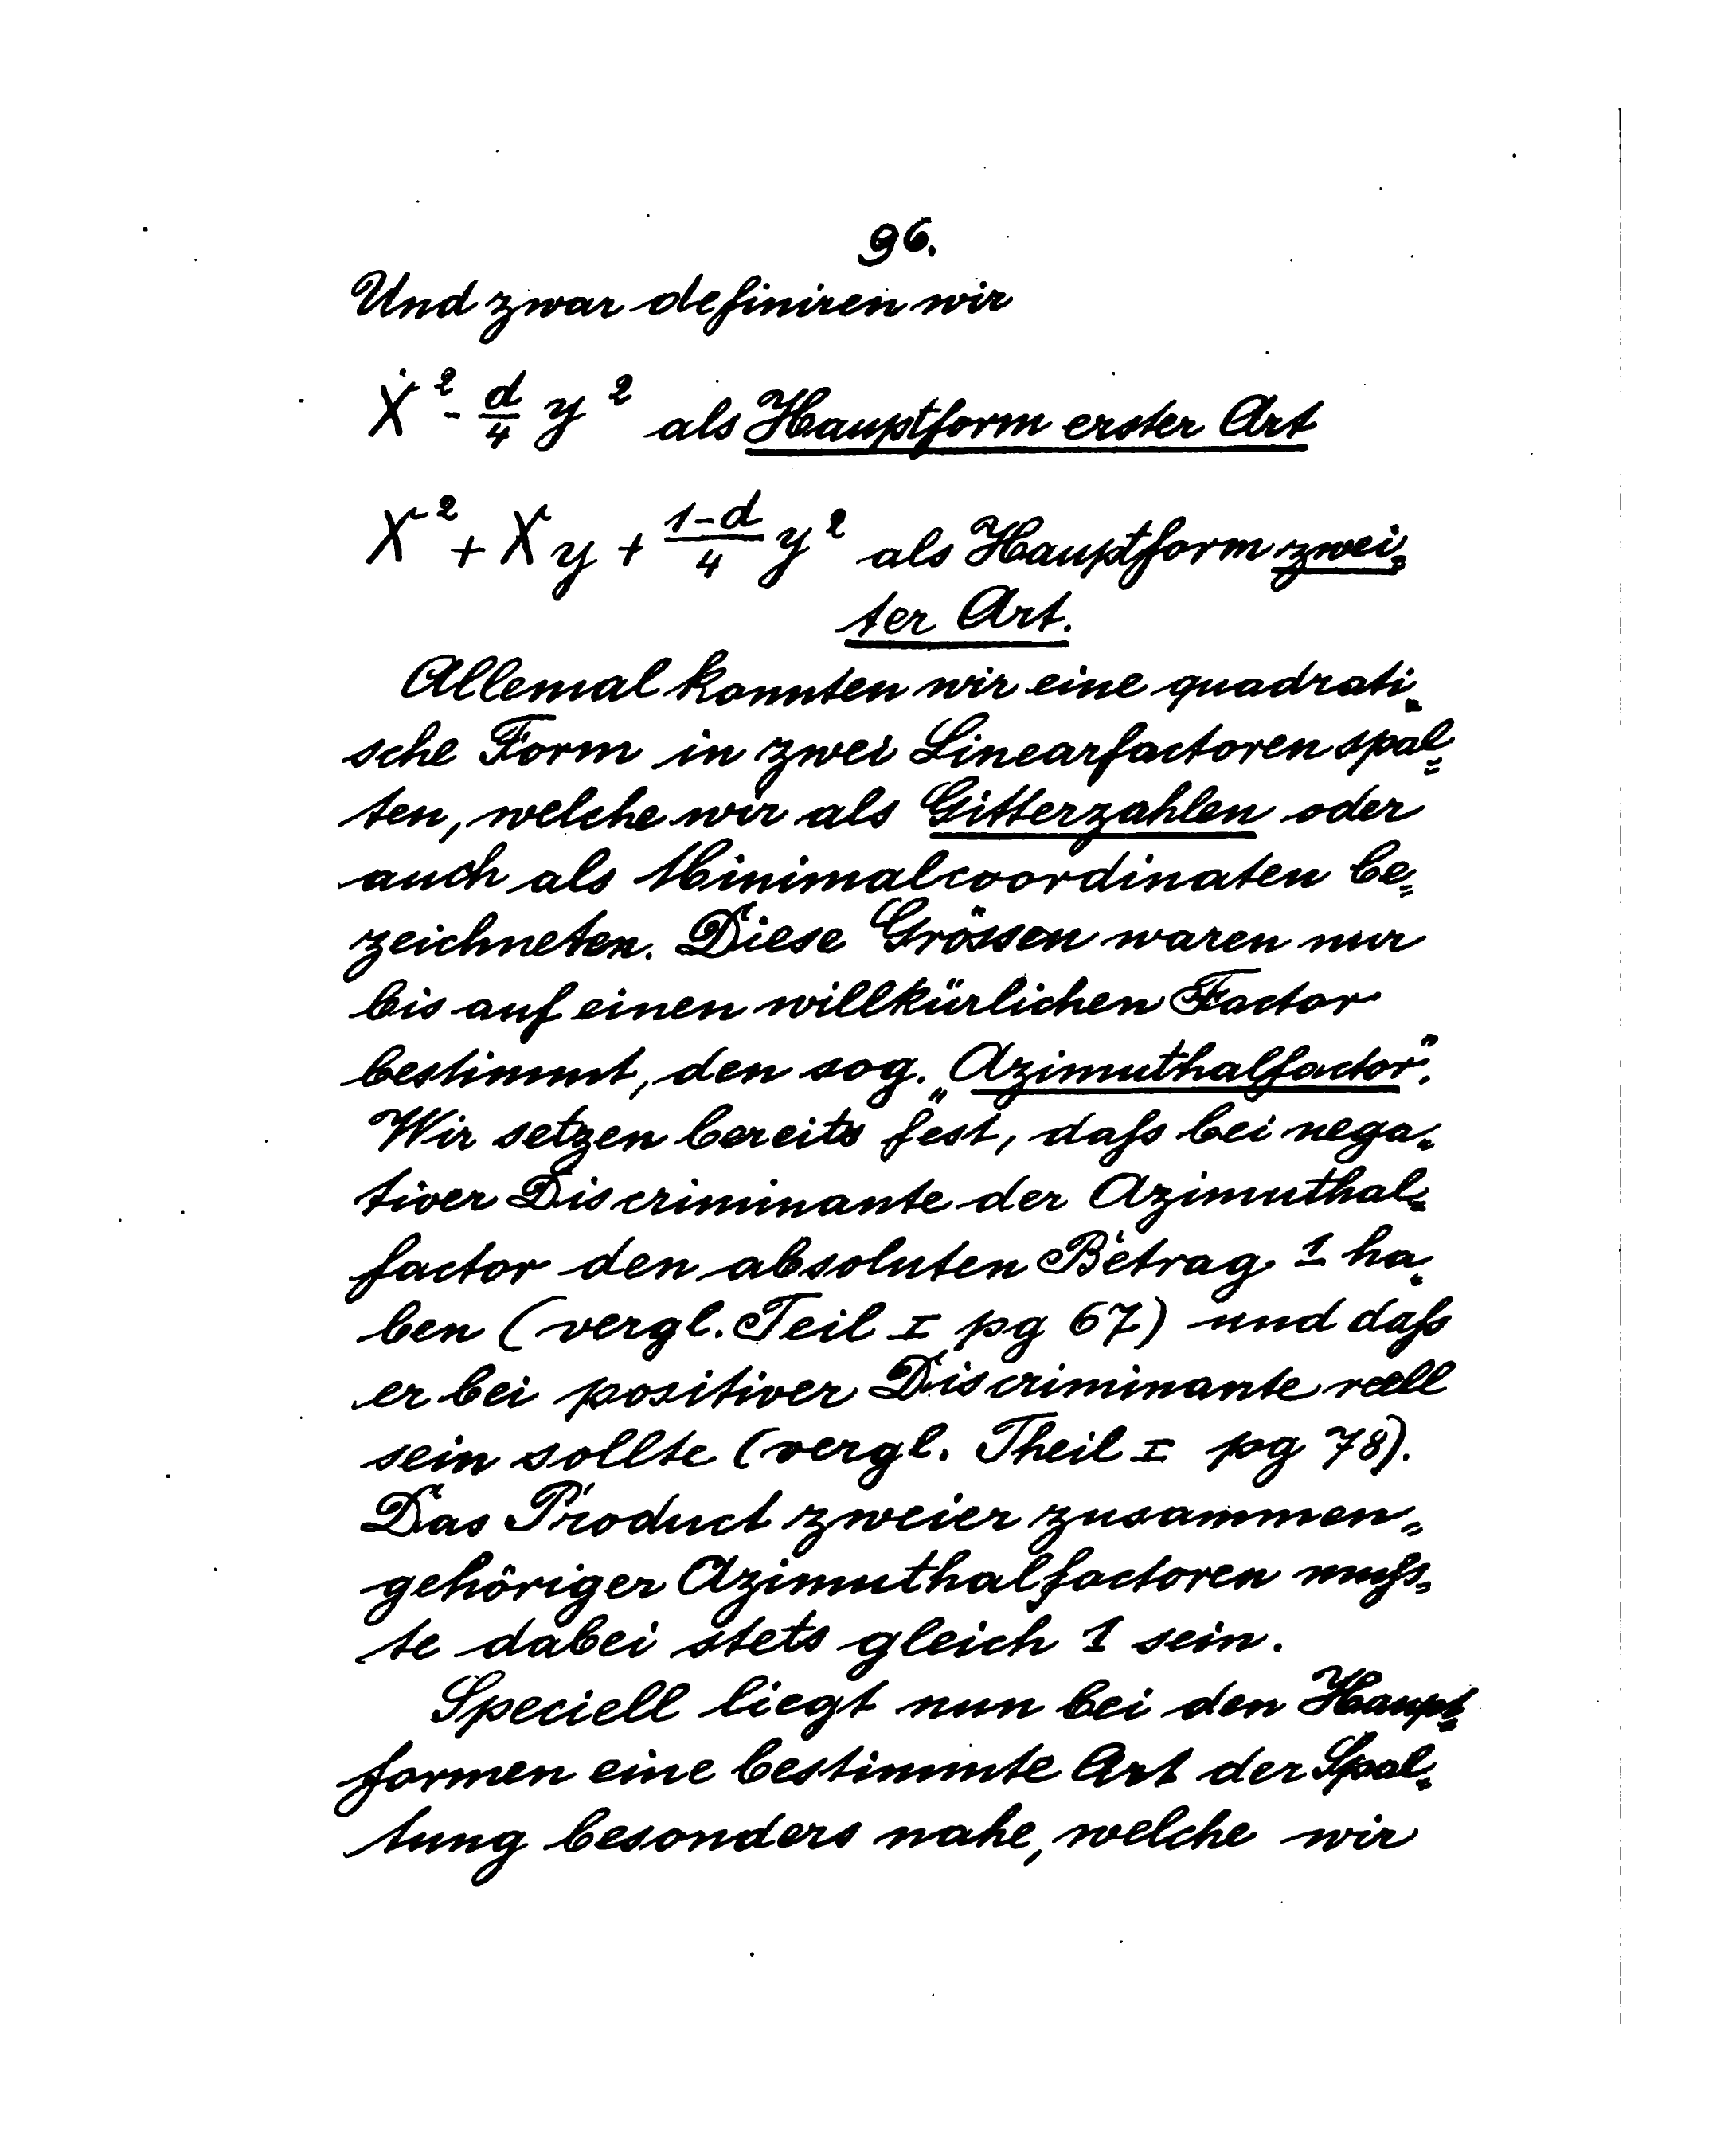 96.
Und zwar definiren wir
X² - d/4 y² als Hauptform erster Art
X² + Xy + (1-d)/4 y² als Hauptform zwei-
ter Art.
Allemal konnten wir eine quadrati-
sche Form in zwei Linearfactoren spal-
ten, welche wir als Gitterzahlen oder
auch als Minimalcoordinaten be-
zeichneten. Diese Grössen waren nur
bis auf einen willkürlichen Factor
bestimmt, den sog. „Azimuthalfactor".
Wir setzen bereits fest, daß bei nega-
tiver Discriminante der Azimuthal-
factor den absoluten Betrag 1 ha-
ben (vergl. Teil I pg 67) und daß
er bei positiver Discriminante reell
sein sollte (vergl. Theil I pg 78).
Das Product zweier zusammen-
gehöriger Azimuthalfactoren muß-
te dabei stets gleich 1 sein.
Speciell liegt nun bei den Haupt-
formen eine bestimmte Art der Spal-
tung besonders nahe, welche wir